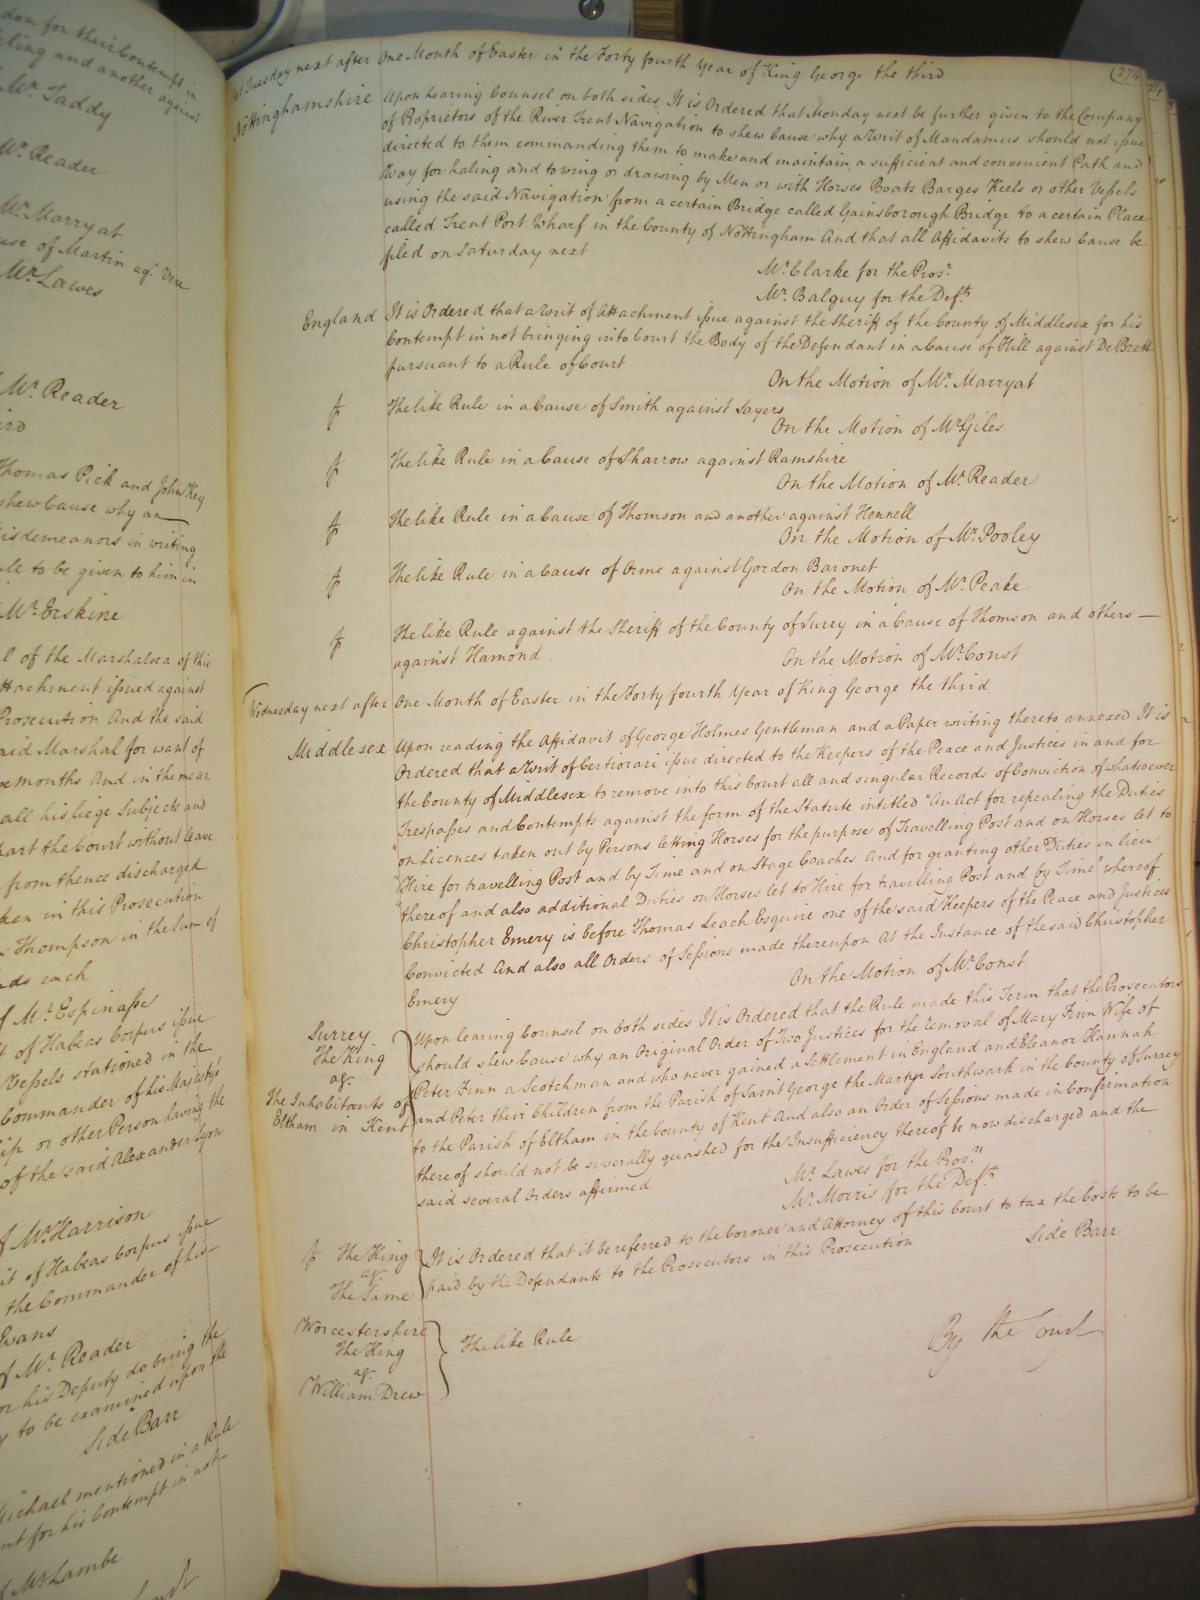 don for their Contempt in
and another against
Mr. Taddy
Mr. Reader
Mr. Marryat
use of Martin agt. Vere
Mr. Lawes
Mr. Reader
ird
Thomas Pick and John Key
shew Cause why an
isdemeanors in writing
ule to be given to him in
Mr. Erskine
l of the Marshalsea of this
ttachment issued against
Prosecution And the said
aid Marshal for want of
e months And in the mean
all his liege Subjects and
part the Court without leave
from thence discharged
ken in this Prosecution
Thompson in the Sum of
nds each
f Mr. Espinasse
t of Habeas Corpus issue
Vessels stationed in the
Commander of his Majestys
ip or other Person having the
of the said Alexander Lyon
f Mr. Harrison
it of Habeas Corpus issue
the Commander of his
Evans
f Mr. Reader
or his Deputy do bring the
y to be examined upon the
Side Barr
Michael mentioned in a Rule
nt for his Contempt in not
f Mr. Lambe
(274)
Tuesday next after One Month of Easter in the Forty fourth Year of King George the third
Nottinghamshire Upon hearing Counsel on both sides It is Ordered that Monday next be further given to the Company
of Proprietors of the River Trent Navigation to shew Cause why a Writ of Mandamus should not issue
directed to them commanding them to make and maintain a sufficient and convenient Path and
Way for haling and towing or drawing by Men or with Horses Boats Barges Keels or other Vessels
using the said Navigation from a certain Bridge called Gainsborough Bridge to a certain Place
called Trent Port Wharf in the County of Nottingham And that all Affidavits to shew Cause be
filed on Saturday next
Mr. Clarke for the Prosr.
Mr. Balguy for the Defts.
England It is Ordered that a Writ of Attachment issue against the Sheriff of the County of Middlesex for his
Contempt in not bringing into Court the Body of the Defendant in a Cause of Hill against De Brett
pursuant to a Rule of Court
On the Motion of Mr. Marryat
The like Rule in a Cause of Smith against Sayers
On the Motion of Mr. Giles
The like Rule in a Cause of Sharrow against Ramshire
On the Motion of Mr. Reader
The like Rule in a Cause of Thomson and another against Hennell
On the Motion of Mr. Pooley
The like Rule in a Cause of Orme against Gordon Baronet
On the Motion of Mr. Peake
The like Rule against the Sheriff of the County of Surry in a Cause of Thomson and others —
against Hamond
On the Motion of Mr. Const
Wednesday next after One Month of Easter in the Forty fourth Year of King George the third
Middlesex Upon reading the Affidavit of George Holmes Gentleman and a Paper writing thereto annexed It is
Ordered that a Writ of Certiorari issue directed to the Keepers of the Peace and Justices in and for
the County of Middlesex to remove into this Court all and singular Records of Conviction of whatsoever
Trespasses and Contempts against the form of the Statute intitled "An Act for repealing the Duties
"on Licences taken out by Persons letting Horses for the purpose of Travelling Post and on Horses let to
"Hire for travelling Post and by Time and on Stage Coaches And for granting other Duties in lieu
"thereof and also additional Duties on Horses let to Hire for travelling Post and by Time" whereof
Christopher Emery is before Thomas Leach Esquire one of the said Keepers of the Peace and Justices
Convicted And also all Orders of Sessions made thereupon At the Instance of the said Christopher
Emery
On the Motion of Mr. Const
Surrey
The King
agt.
The Inhabitants of
Eltham in Kent
Upon hearing Counsel on both sides It is Ordered that the Rule made this Term that the Prosecutors
should shew Cause why an Original Order of Two Justices for the removal of Mary Finn Wife of
Peter Finn a Scotchman and who never gained a Settlement in England and Eleanor Hannah
and Peter their Children from the Parish of Saint George the Martyr Southwark in the County of Surrey
to the Parish of Eltham in the County of Kent And also an Order of Sessions made in Confirmation
thereof should not be severally quashed for the Insufficiency thereof be now discharged and the
said several Orders affirmed
Mr. Lawes for the Prosrs.
Mr. Morris for the Defts.
The King
agt.
The Same
It is Ordered that it be referred to the Coroner and Attorney of this Court to tax the Costs to be
paid by the Defendants to the Prosecutors in this Prosecution
Side Barr
Worcestershire
The King
agt.
William Drew
The like Rule
By the Court